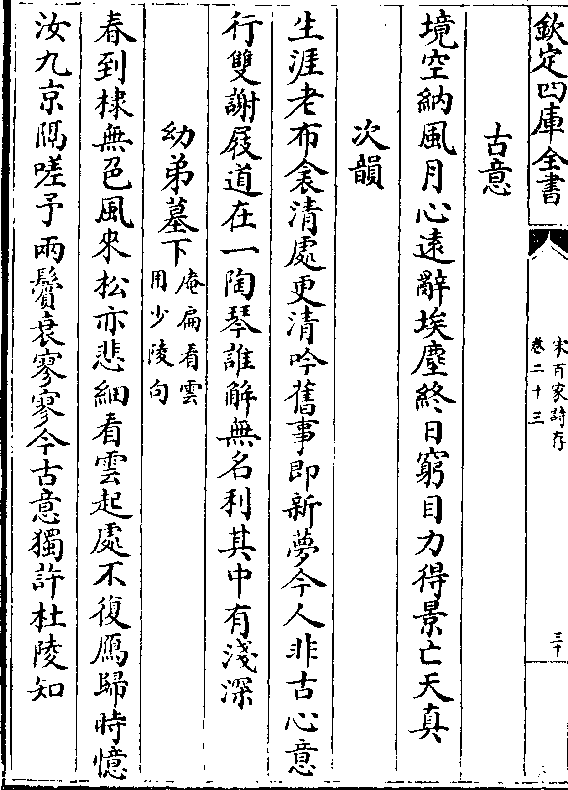 欽定四庫全書
宋百家詩存
卷二十三
三十
古意
境空納風月心遠辭埃塵終日窮目力得景亡天真
次韻
生涯老布衾清處更清吟舊事即新夢今人非古心意
行雙謝屐道在一陶琴誰解無名利其中有淺深
幼弟墓下
庵扁看雲
用少陵句
春到棣無色風來松亦悲細看雲起處不復鴈歸時憶
汝九京隔嗟予兩鬢衰寥寥今古意獨許杜陵知